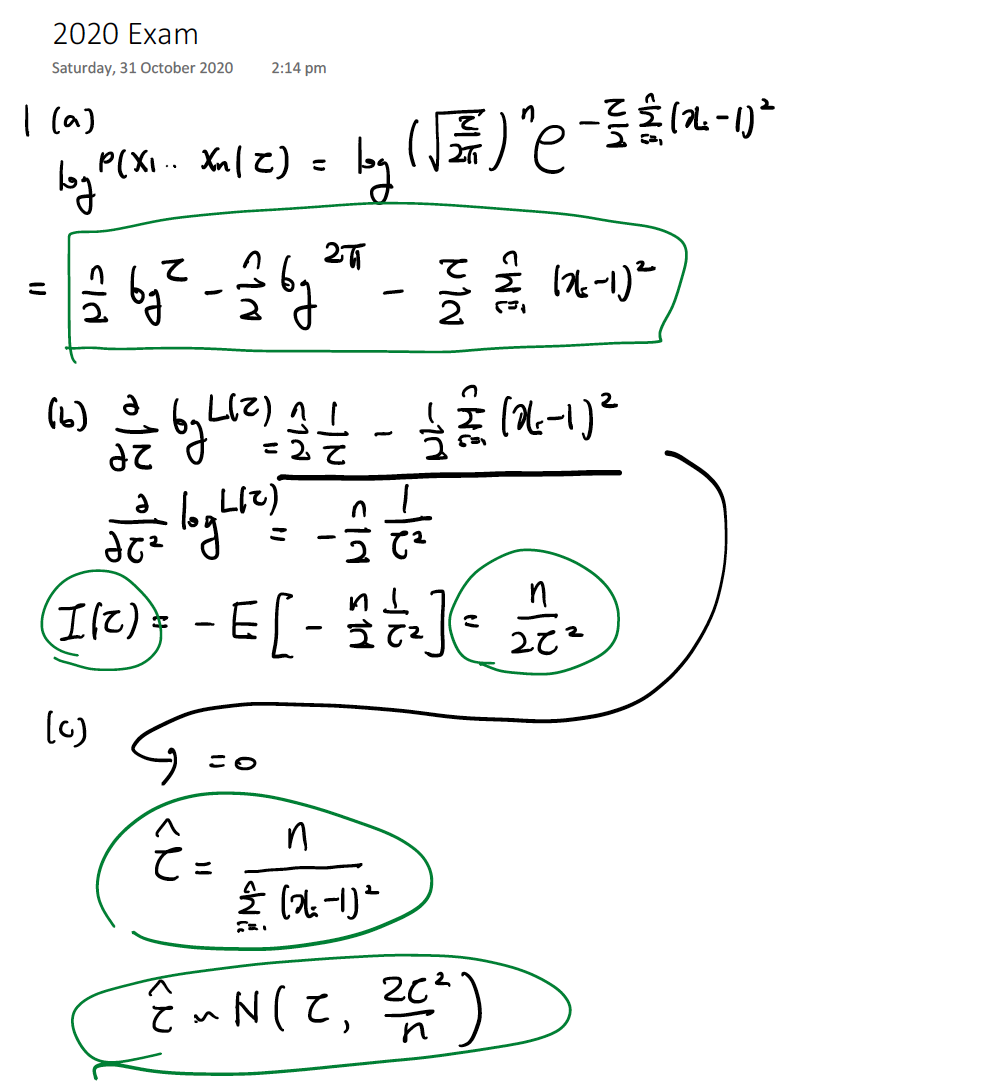 2020 Exam
Saturday, 31 October 2020 2:14 pm
1 (a)
log P(x₁ .. xₙ|τ) = log (√(τ/2π))ⁿ e^(-τ/2 Σᵢ₌₁ⁿ (xᵢ-1)²)
= n/2 log τ - n/2 log 2π - τ/2 Σᵢ₌₁ⁿ (xᵢ-1)²
(b) ∂/∂τ log L(τ) = n/2 1/τ - 1/2 Σᵢ₌₁ⁿ (xᵢ-1)²
∂/∂τ² log L(τ) = - n/2 1/τ²
I(τ) = - E[- n/2 1/τ²] = n/2τ²
(c)
= 0
τ̂ = n/Σᵢ₌₁ⁿ (xᵢ-1)²
τ̂ ~ N(τ, 2τ²/n)